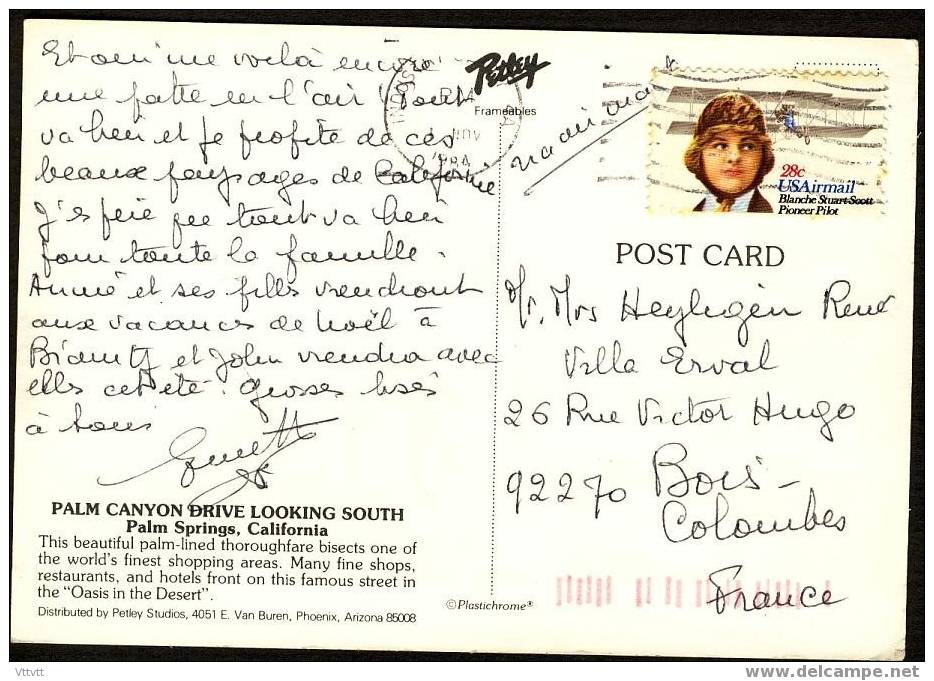 Et oui me voilà encore
une patte en l'air Tout
va bien et je profite de ces
beaux paysages de Californie
J'espère que tout va bien
pour toute la famille.
Annie et ses filles viendront
aux vacances de Noël à
et John viendra avec
elles cet été. Grosses bises
à tous
PALM CANYON DRIVE LOOKING SOUTH
Palm Springs, California
This beautiful palm-lined thoroughfare bisects one of
the world's finest shopping areas. Many fine shops,
restaurants, and hotels front on this famous street in
the "Oasis in the Desert".
Distributed by Petley Studios, 4051 E. Van Buren, Phoenix, Arizona 85008
Petley
Frameables
NOV
1984
via air mail
28c
USAirmail
Blanche Stuart Scott
Pioneer Pilot
POST CARD
Mr. Mrs Heyligen René
Villa Erval
26 Rue Victor Hugo
92270 Bois-
Colombes
France
©Plastichrome®
Vttvtt
www.delcampe.net